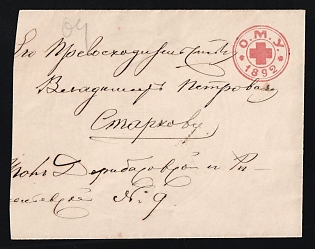 Его Превосходительству
О.М.У.
1892
Владимиру Петровичу
Старкову.
Уголъ Дерибасовской и Ри-
шельевской № 9.